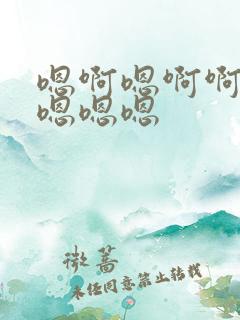 嗯啊嗯啊啊
嗯嗯嗯
微蔷
未经同意禁止转载